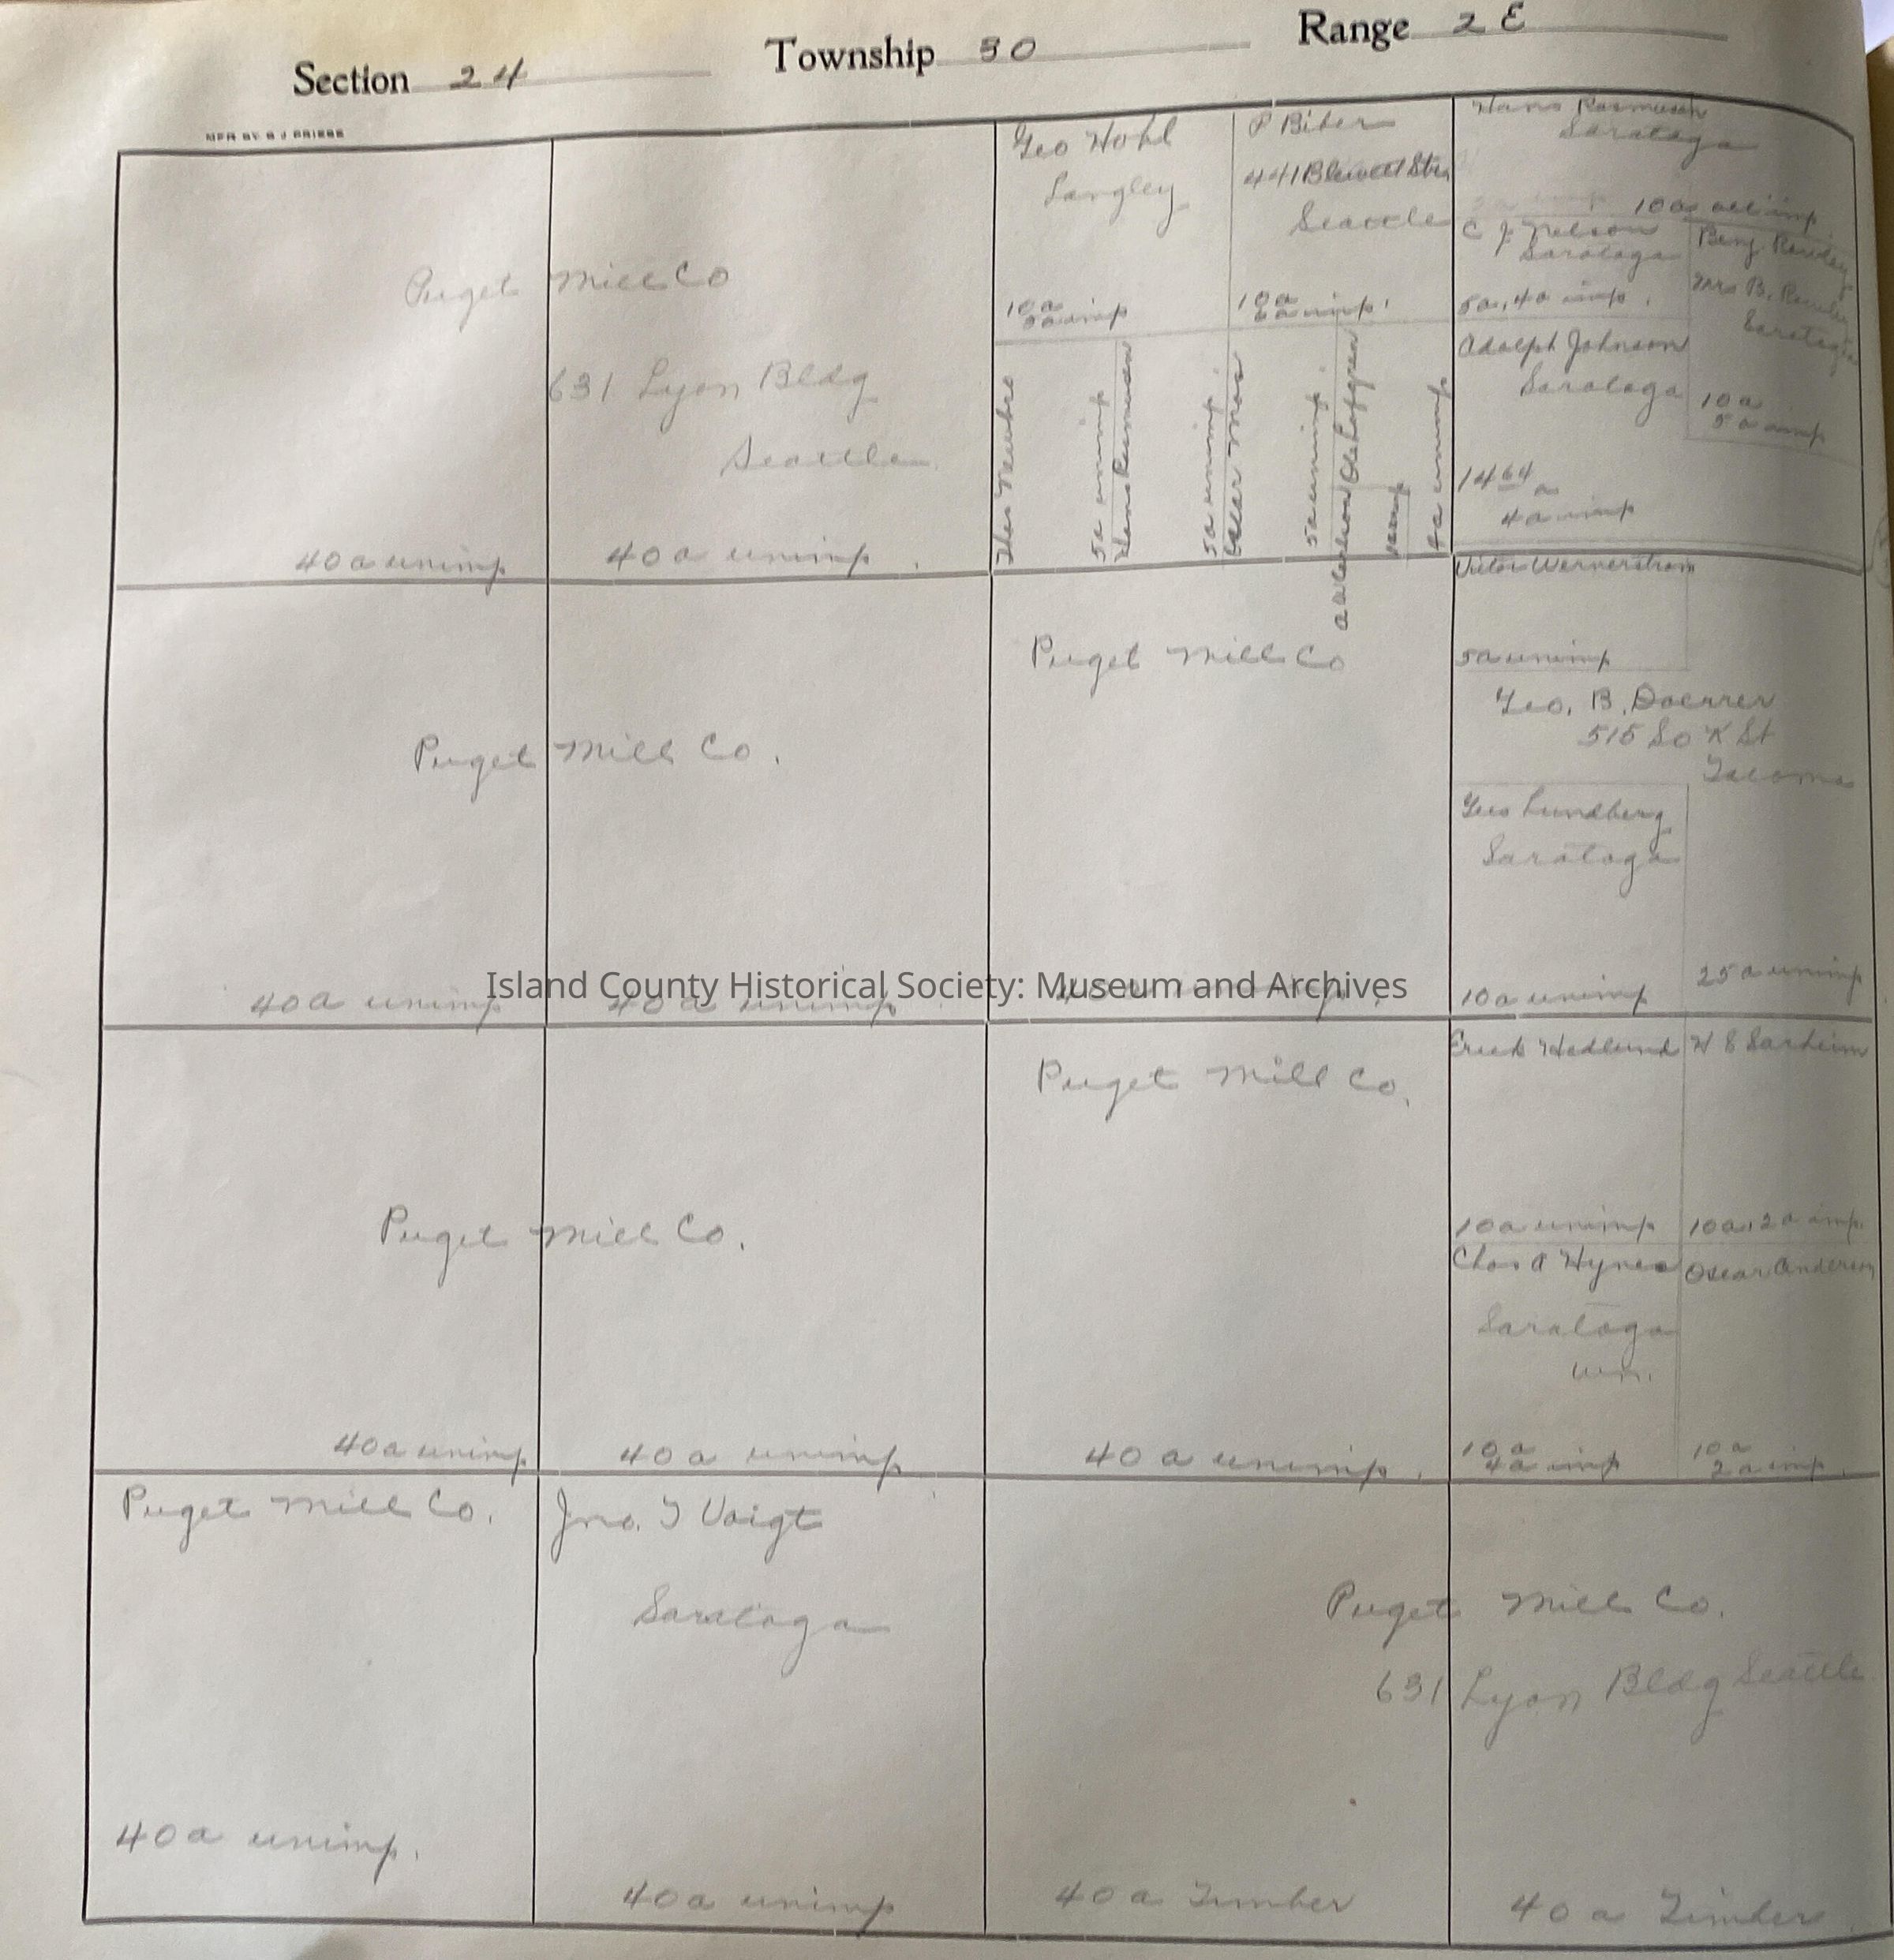 Section 24 Township 30 Range 2 E
MFR BY S J PRIESS
Puget Mill Co
631 Lyon Bldg
Seattle
40a unimp
40 a unimp.
Geo Hohl
Langley
10a
5a imp
P Biber
441 Stra
Seattle
10a
6a imp.
Thos
5a unimp
Hans Rasmussen
5a unimp
Oscar
5a unimp.
Ole Lofgren
1a imp
4a unimp
Hans Rasmussen
Saratoga
10a all imp
C J Nelson
Saratoga
5a, 4a imp.
Benj
Mrs B.
Saratoga
10a
5a imp
Adolph Johnson
Saratoga
14 64 a
4a imp
Puget Mill Co.
40a unimp
40 a unimp.
Puget Mill Co
Victor Wernerstrom
5a unimp
Geo. B. Doerrer
515 So K St
Tacoma
Gus Lundberg
Saratoga
10a unimp
25a unimp
Island County Historical Society: Museum and Archives
Puget Mill Co.
40a unimp
40 a unimp
Puget Mill Co.
40 a unimp.
Erick Hedlund
10a unimp
H S
10a, 2a imp.
Chas A Hynes
Saratoga
Wn.
10a
4a imp
Oscar Anderson
10a
2a imp.
Puget Mill Co.
40a unimp.
Jno. T Voigt
Saratoga
40a unimp
Puget Mill Co.
631 Lyon Bldg Seattle
40 a Timber
40 a Timber